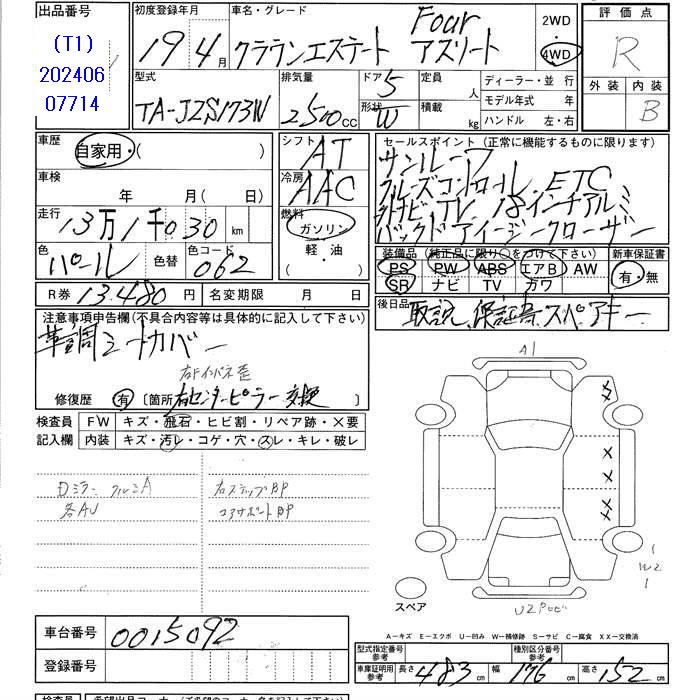 出品番号
(T1)
202406
07714
初度登録年月
19 4 月
車名・グレード
Four
クラウンエステート アスリート
2WD
4WD
評価点
R
外装 内装
B
型式
TA-JZS173W
排気量
2500cc
ドア 5
形状 W
定員 人
積載 kg
ディーラー・並行
モデル年式 年
ハンドル 左・右
車歴
自家用・( )
車検
年 月( 日)
走行
13万1千030 km
色
パール
色替
色コード
062
シフト
AT
冷房
AAC
燃料
ガソリン
軽・油
( )
セールスポイント(正常に機能するものに限ります)
サンルーフ
クルーズコントロール、ETC
外ナビ、TV、18インチアルミ
バックドアイージークローザー
装備品(純正品に限り○をつけて下さい)
PS PW ABS エアB AW
SR ナビ TV カワ
新車保証書
有・無
R券 13,480 円
名変期限 月 日
後日品
取説、保証書、スペアキー
注意事項申告欄(不具合内容等は具体的に記入して下さい)
革調シートカバー
右Fインパネ歪
修復歴 有 〔箇所 右センターピラー交換 〕
検査員 FW キズ・飛石・ヒビ割・リペア跡・×要
記入欄 内装 キズ・汚レ・コゲ・穴・スレ・キレ・破レ
Dミラー クルミA
各AU
右ステップBP
コアサポートBP
A1
W2
U2
スペア
A−キズ E−エクボ U−凹み W−補修跡 S−サビ C−腐食 XX−交換済
車台番号
0015092
登録番号
型式指定番号
参考
種別区分番号
参考
車庫証明用
参考
長さ 483 cm
幅 176 cm
高さ 152 cm